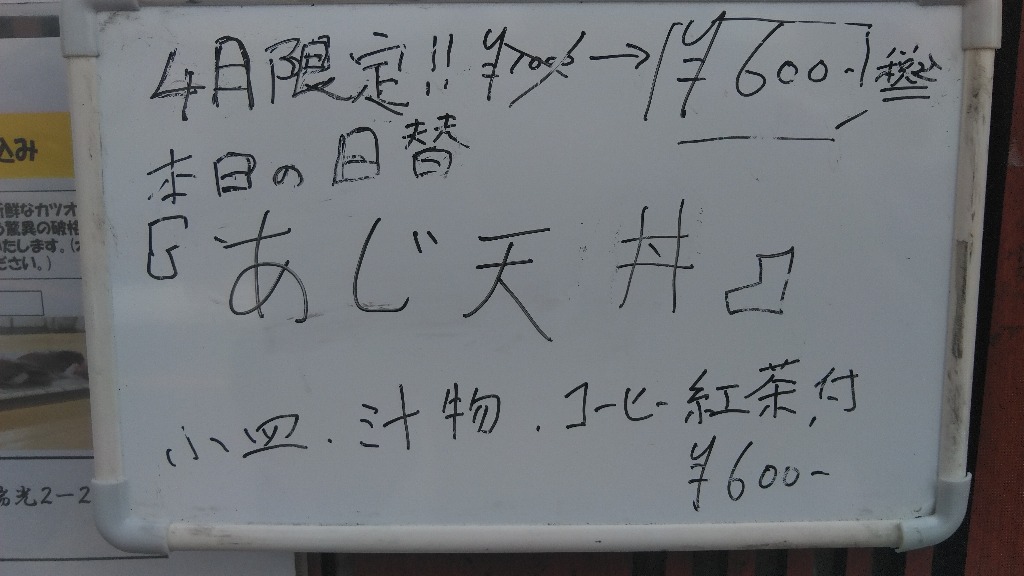 4月限定!! ¥700 → ¥600.- 税込
本日の日替
『あじ天丼』
小皿.汁物.コーヒー紅茶付
¥600-
込み
新鮮なカツオ
驚異の破格
いたします。
ださい。)
光2-2